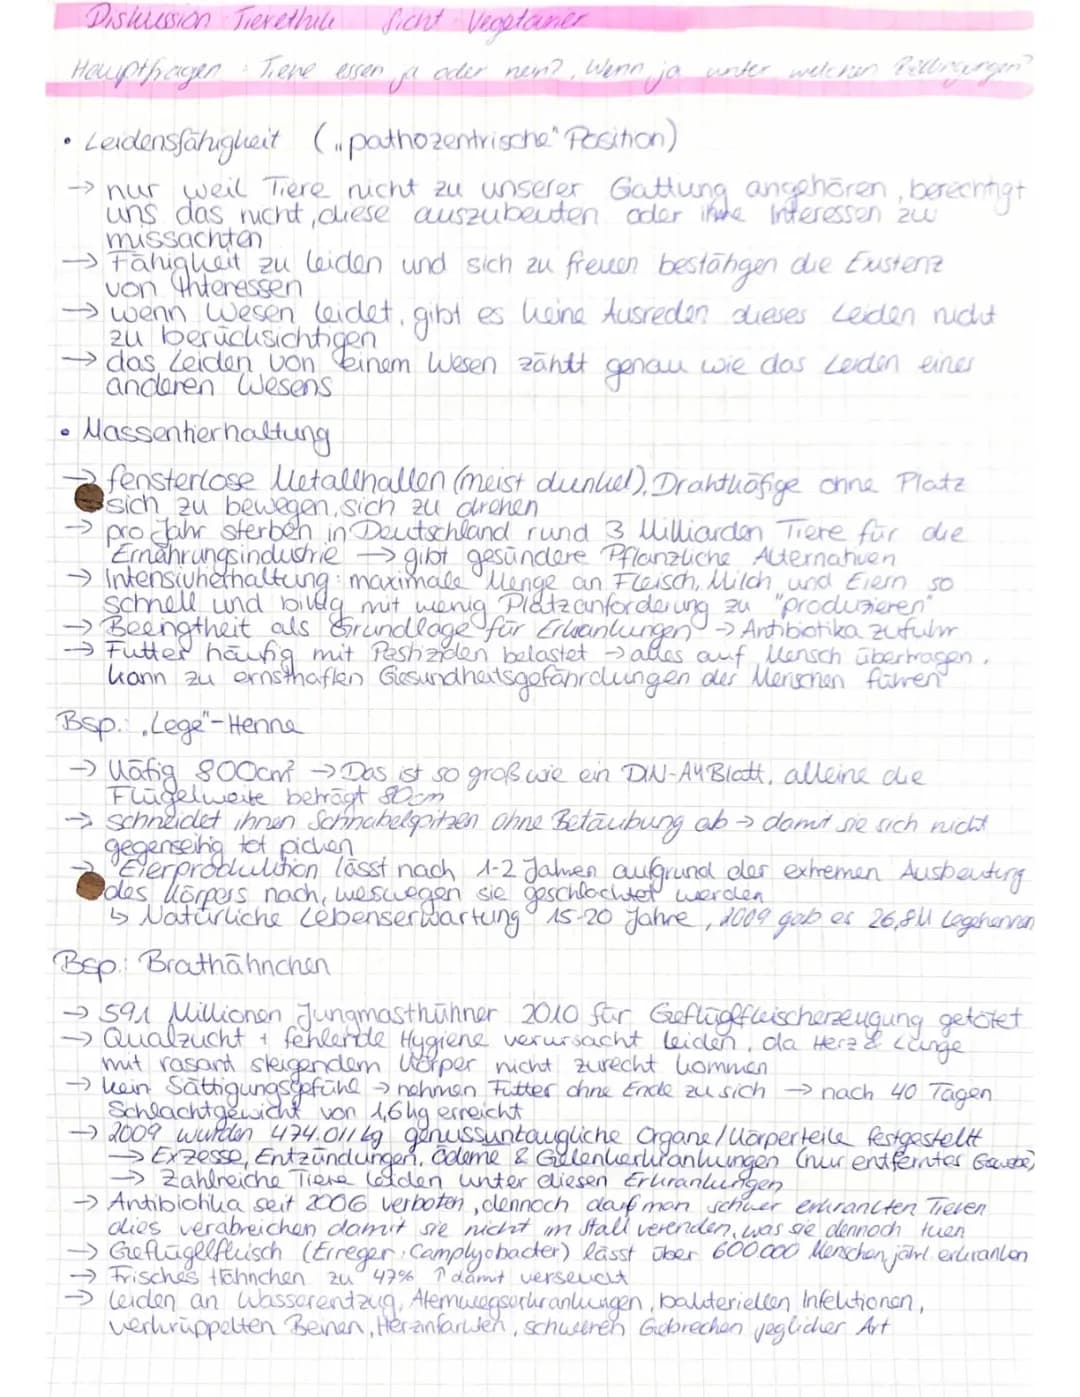 Diskussion Tierethik Sicht Vegetarier
Hauptfragen: Tiere essen ja oder nein?, Wenn ja unter welchen Bedingungen?
• Leidensfähigkeit („pathozentrische" Position)
→ nur weil Tiere nicht zu unserer Gattung angehören, berechtigt
uns das nicht, diese auszubeuten oder ihre Interessen zu
missachten
→ Fähigkeit zu leiden und sich zu freuen bestätigen die Existenz
von Interessen
→ wenn Wesen leidet, gibt es keine Ausreden dieses Leiden nicht
zu berücksichtigen
→ das Leiden von einem Wesen zählt genau wie das Leiden eines
anderen Wesens
• Massentierhaltung
→ fensterlose Metallhallen (meist dunkel), Drahtkäfige ohne Platz
sich zu bewegen, sich zu drehen
→ pro Jahr sterben in Deutschland rund 3 Milliarden Tiere für die
Ernährungsindustrie → gibt gesündere Pflanzliche Alternativen
→ Intensivhethaltung: maximale Menge an Fleisch, Milch und Eiern so
schnell und billig mit wenig Platzanforderung zu "produzieren"
→ Beengtheit als Grundlage für Erkrankungen → Antibiotika zufuhr
→ Futter häufig mit Pestiziden belastet → alles auf Mensch übertragen,
kann zu ernsthaften Gesundheitsgefährdungen des Menschen führen
Bsp.: „Lege"-Henne
→ Käfig 800cm² → Das ist so groß wie ein DIN-A4 Blatt, alleine die
Flügelweite beträgt 80cm
→ schneidet ihnen Schnabelspitzen ohne Betäubung ab → damit sie sich nicht
gegenseitig tot picken
→ Eierproduktion lässt nach 1-2 Jahren aufgrund der extremen Ausbeutung
des Körpers nach, weswegen sie geschlachtet werden
↳ Natürliche Lebenserwartung 15-20 Jahre, 2009 gab es 26,8M Legehennen
Bsp.: Brathähnchen
→ 591 Millionen Jungmasthühner 2010 für Geflügelfleischerzeugung getötet
→ Qualzucht + fehlende Hygiene verursacht Leiden, da Herz & Lunge
mit rasant steigendem Körper nicht zurecht kommen
→ kein Sättigungsgefühl → nehmen Futter ohne Ende zu sich → nach 40 Tagen
Schlachtgewicht von 1,6kg erreicht
→ 2009 wurden 474.011 kg genussuntaugliche Organe/Körperteile festgestellt
→ Exzesse, Entzündungen, Ödeme & Gelenkerkrankungen (nur entferntes
→ Zahlreiche Tiere leiden unter diesen Erkrankungen
→ Antibiotika seit 2006 verboten, dennoch darf man schwer erkrankten Tieren
dies verabreichen damit sie nicht im Stall verenden, was sie dennoch tuen
→ Geflügelfleisch (Erreger: Camplyobacter) lässt über 600000 Menschen jährl. erkranken
→ Frisches Hähnchen zu 47% ↑ damit verseucht
→ leiden an Wasserentzug, Atemwegserkrankungen, bakteriellen Infektionen,
verkrüppelten Beinen, Herzinfarkten, schweren Gebrechen jeglicher Art